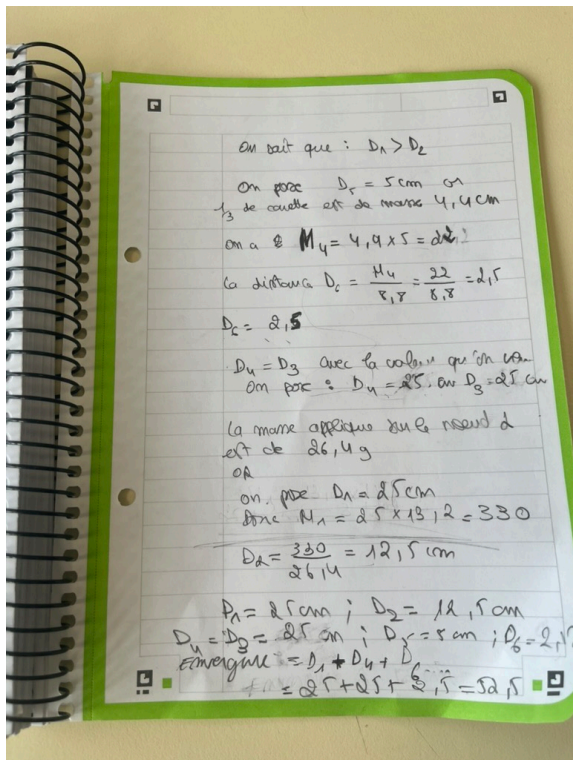 On sait que : D1 > D2
On pose D5 = 5cm or
1/3 de cuvette est de masse 4,4cm
on a M4 = 4,4 x 5 = 22
La distance D6 = M4/8,8 = 22/8,8 = 2,5
D6 = 2,5
D4 = D3 avec la valeur qu'on
On pose : D4 = 25 ou D3 = 25 cm
La masse applique sur le noeud 2
est de 26,4 g
OR
on pose D1 = 25cm
Donc M1 = 25 x 13,2 = 330
D2 = 330/26,4 = 12,5 cm
D1 = 25cm ; D2 = 12,5cm
D4 = D3 = 25 cm ; D5 = 5 cm ; D6 = 2,5
Envergure = D1 + D4 + D6
= 25 + 25 + 2,5 = 52,5